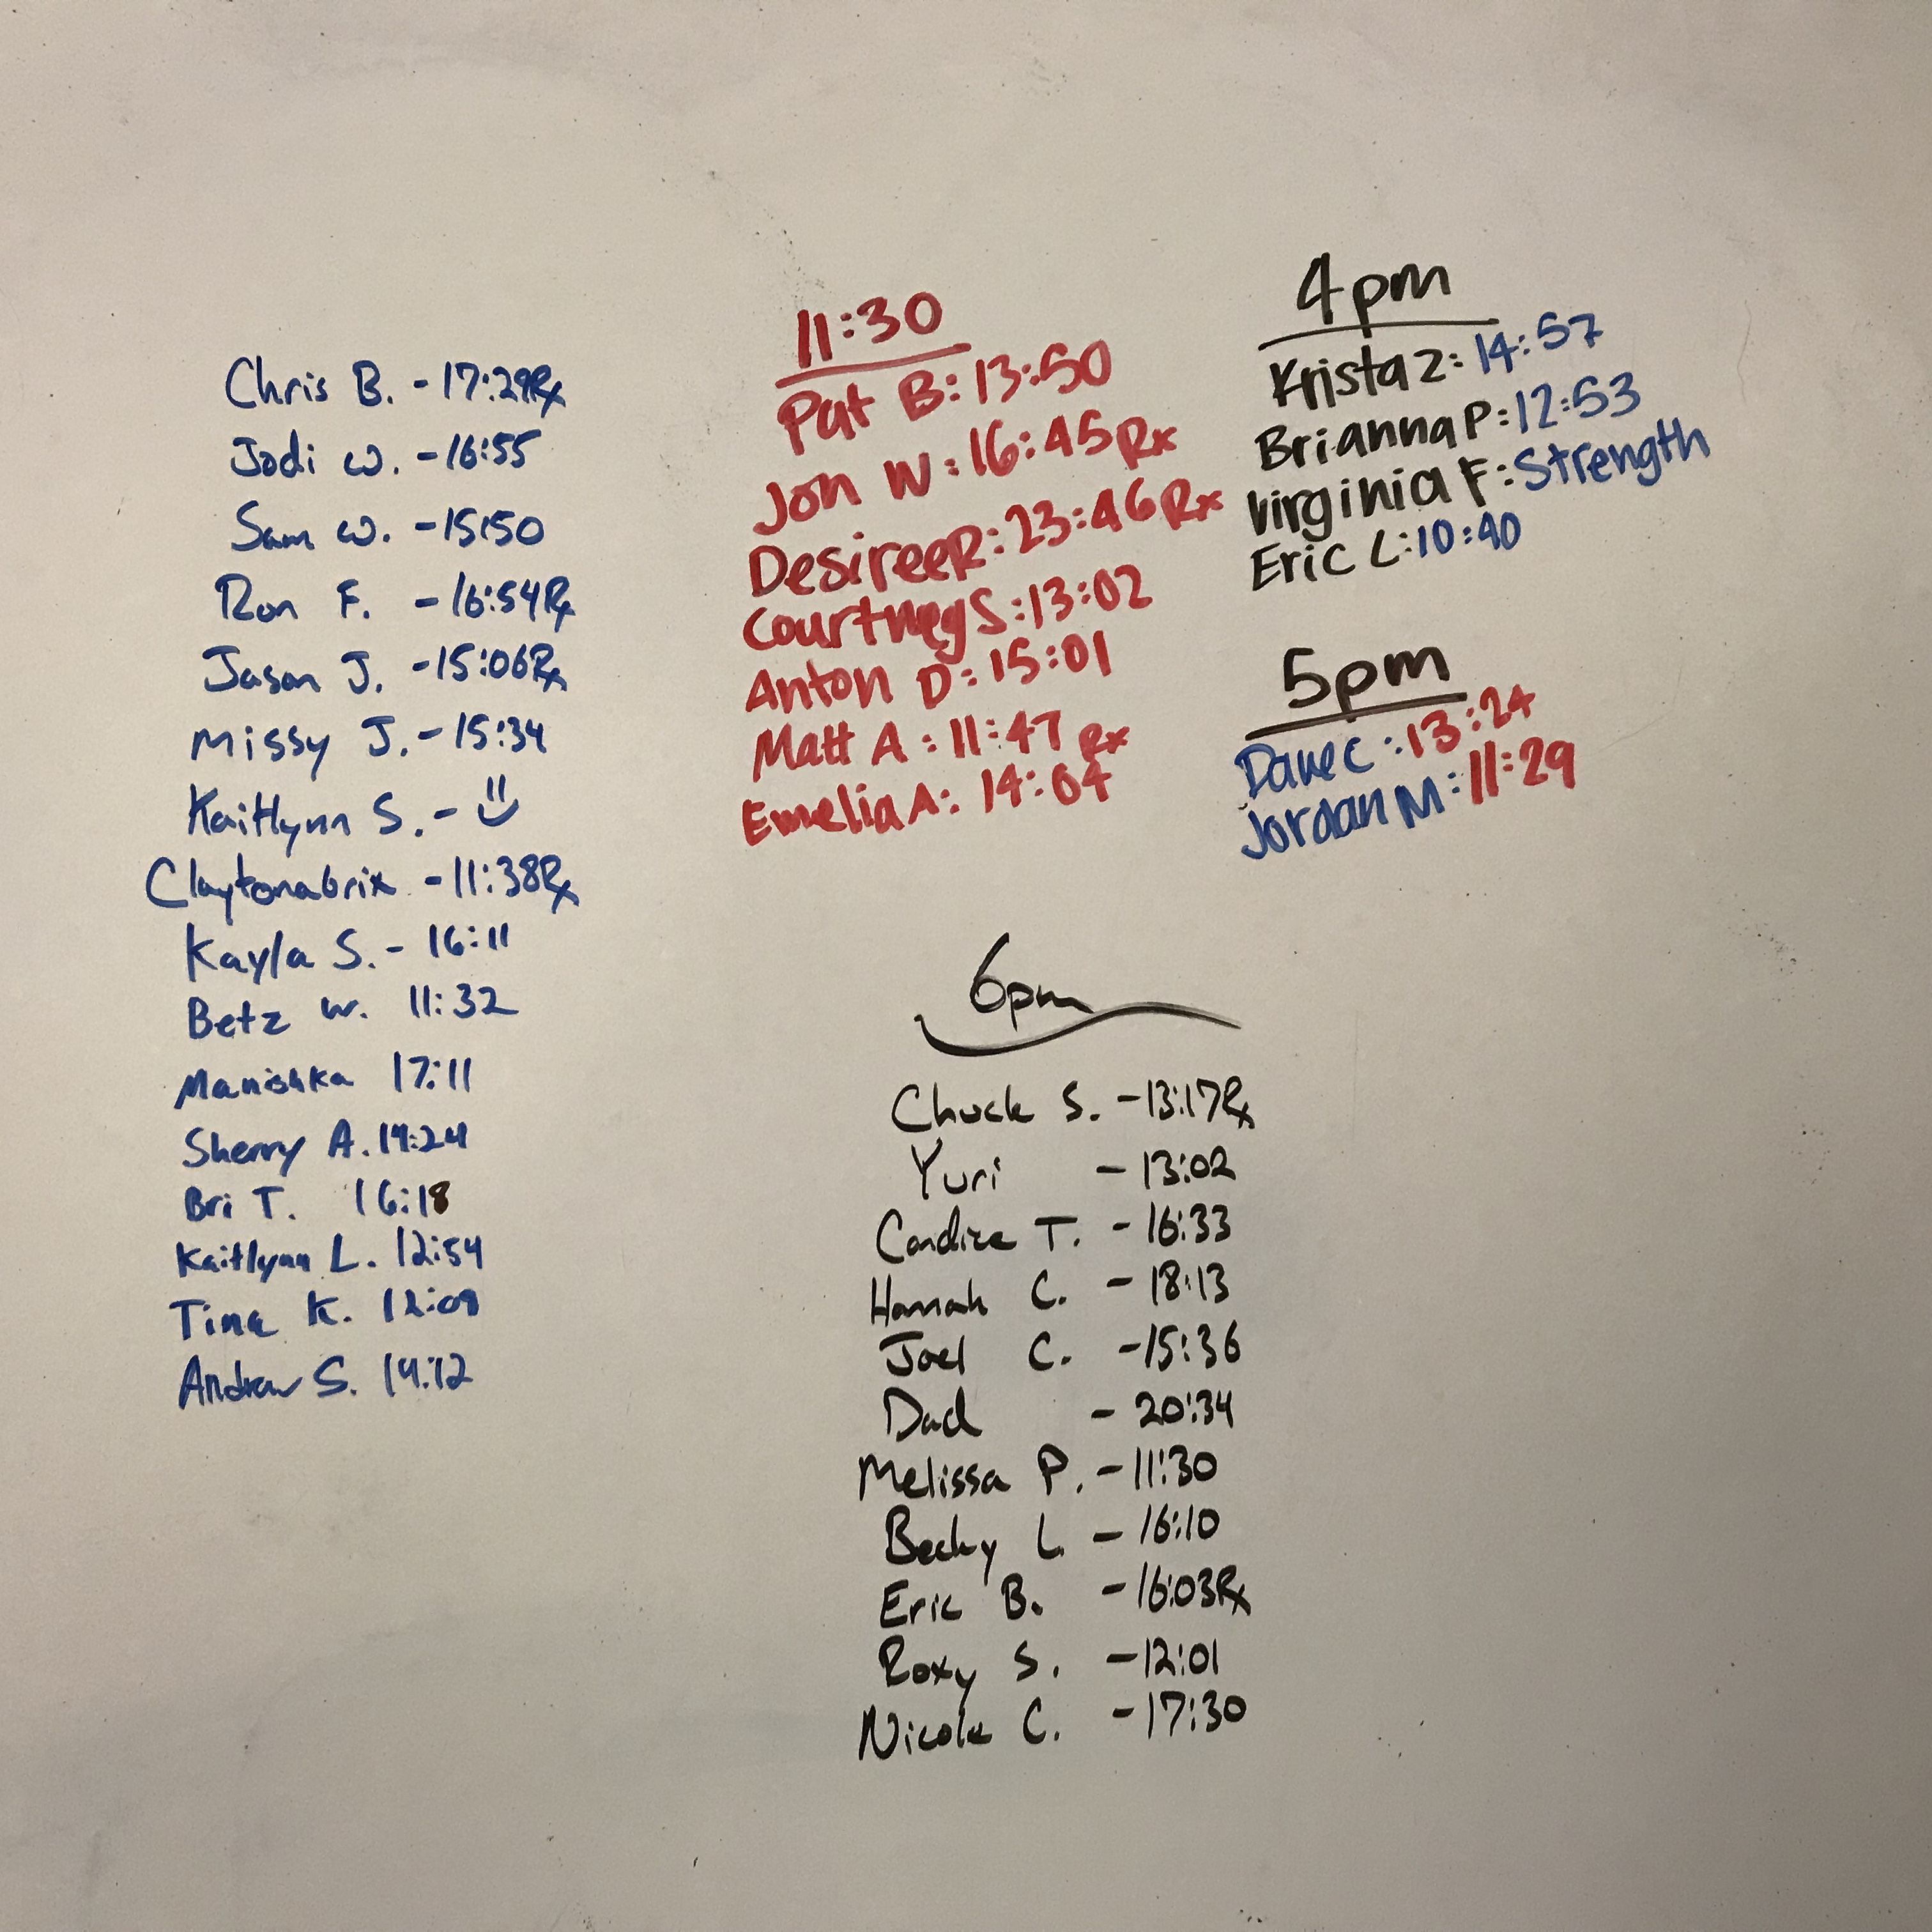 Chris B. - 17:29Rx
Jodi W. - 16:55
Sam W. - 15:50
Ron F. - 16:54Rx
Jason J. - 15:06Rx
Missy J. - 15:34
Kaitlynn S. -
Claytonabrix - 11:38Rx
Kayla S. - 16:11
Betz W. 11:32
Manishka 17:11
Sherry A. 14:24
Bri T. 16:18
Kaitlynn L. 12:54
Tina K. 12:09
Andrew S. 14:12
11:30
Pat B: 13:50
Jon W: 16:45 Rx
Desiree R: 23:46 Rx
Courtney S: 13:02
Anton D: 15:01
Matt A: 11:47 Rx
Emelia A: 14:04
4pm
Krista Z: 14:57
Brianna P: 12:53
Virginia F: Strength
Eric L: 10:40
5pm
Dave C: 13:24
Jordan M: 11:29
6pm
Chuck S. - 13:17Rx
Yuri - 13:02
Candice T. - 16:33
Hannah C. - 18:13
Joel C. - 15:36
Dad - 20:34
Melissa P. - 11:30
Becky L - 16:10
Eric B. - 16:03Rx
Roxy S. - 12:01
Nicole C. - 17:30